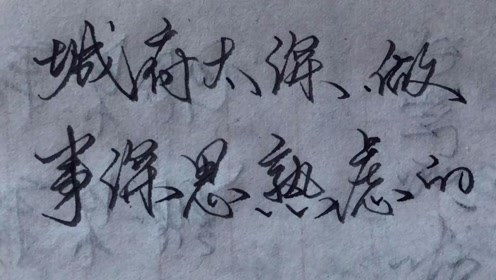 城府太深、做
事深思熟虑的